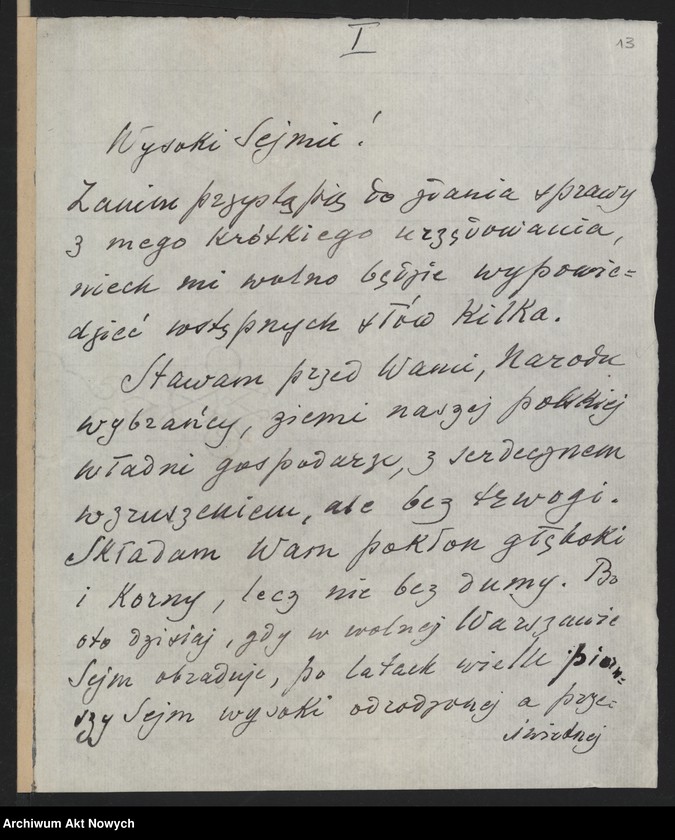 I
13
Wysoki Sejmie!
Zanim przystąpię do zdania sprawy
z mego krótkiego urzędowania,
niech mi wolno będzie wypowie=
dzieć wstępnych słów kilka.
Stawam przed Wami, Narodu
wybrańcy, ziemi naszej polskiej
władni gospodarze, z serdecznem
wzruszeniem, ale bez trwogi.
Składam Wam pokłon głęboki
i korny, lecz nie bez dumy. Bo
oto dzisiaj, gdy w wolnej Warszawie
Sejm obraduje, po latach wielu pierw=
szy Sejm wysoki odrodzonej a prze=
świetnej
Archiwum Akt Nowych